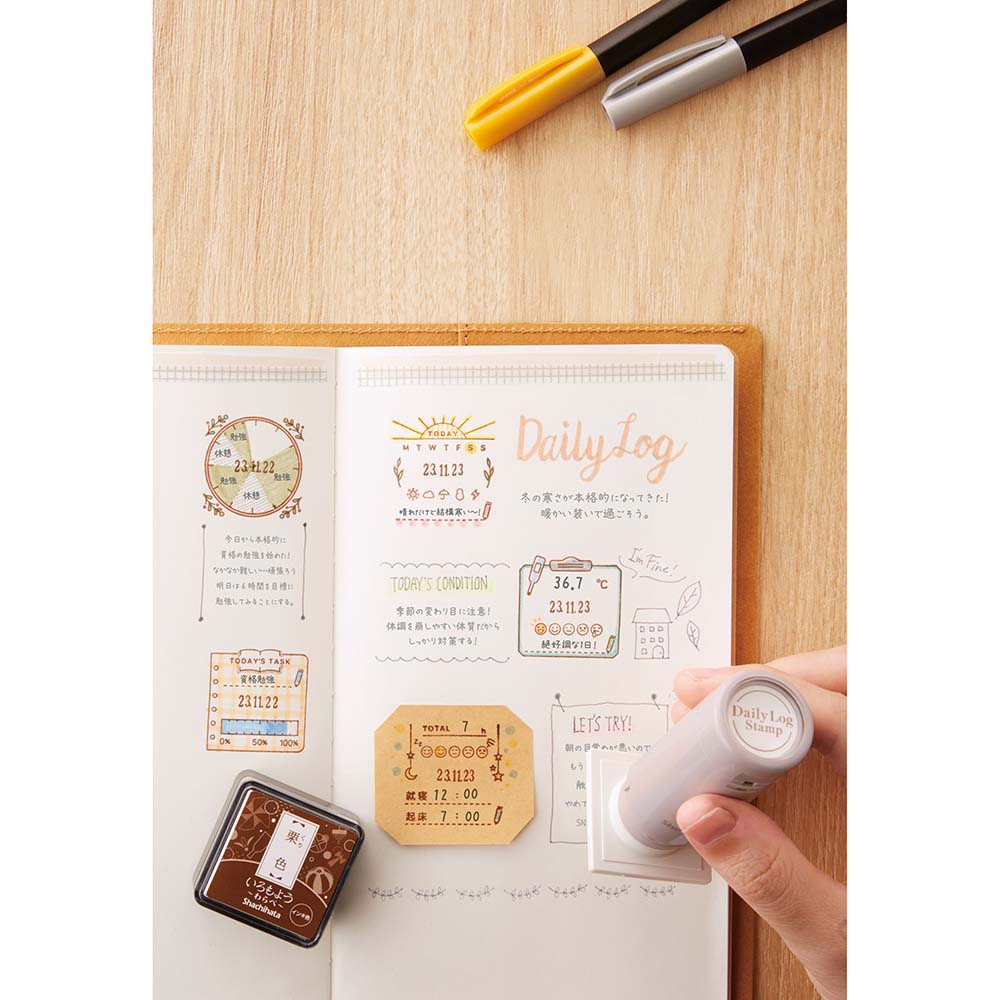 勉強
休憩
23.11.22
勉強
勉強
休憩
今日から本格的に
資格の勉強を始めた!
なかなか難しい…頑張ろう
明日は6時間を目標に
勉強してみることにする。
TODAY'S TASK
資格勉強
23.11.22
0% 50% 100%
TODAY
M T W T F S S
23.11.23
晴れだけど結構寒い〜!
Daily Log
冬の寒さが本格的になってきた!
暖かい装いで過ごそう。
TODAY'S CONDITION
季節の変わり目に注意!
体調を崩しやすい体質だから
しっかり対策する!
36.7 ℃
23.11.23
絶好調な1日!
I'm Fine!
TOTAL 7 h
zz
23.11.23
就寝 12:00
起床 7:00
LET'S TRY!
朝の目覚めが悪いので
もう
やめて
SN
Daily Log
Stamp
栗色
くり
いろもよう
〜わらべ〜
Shachihata
インキ色